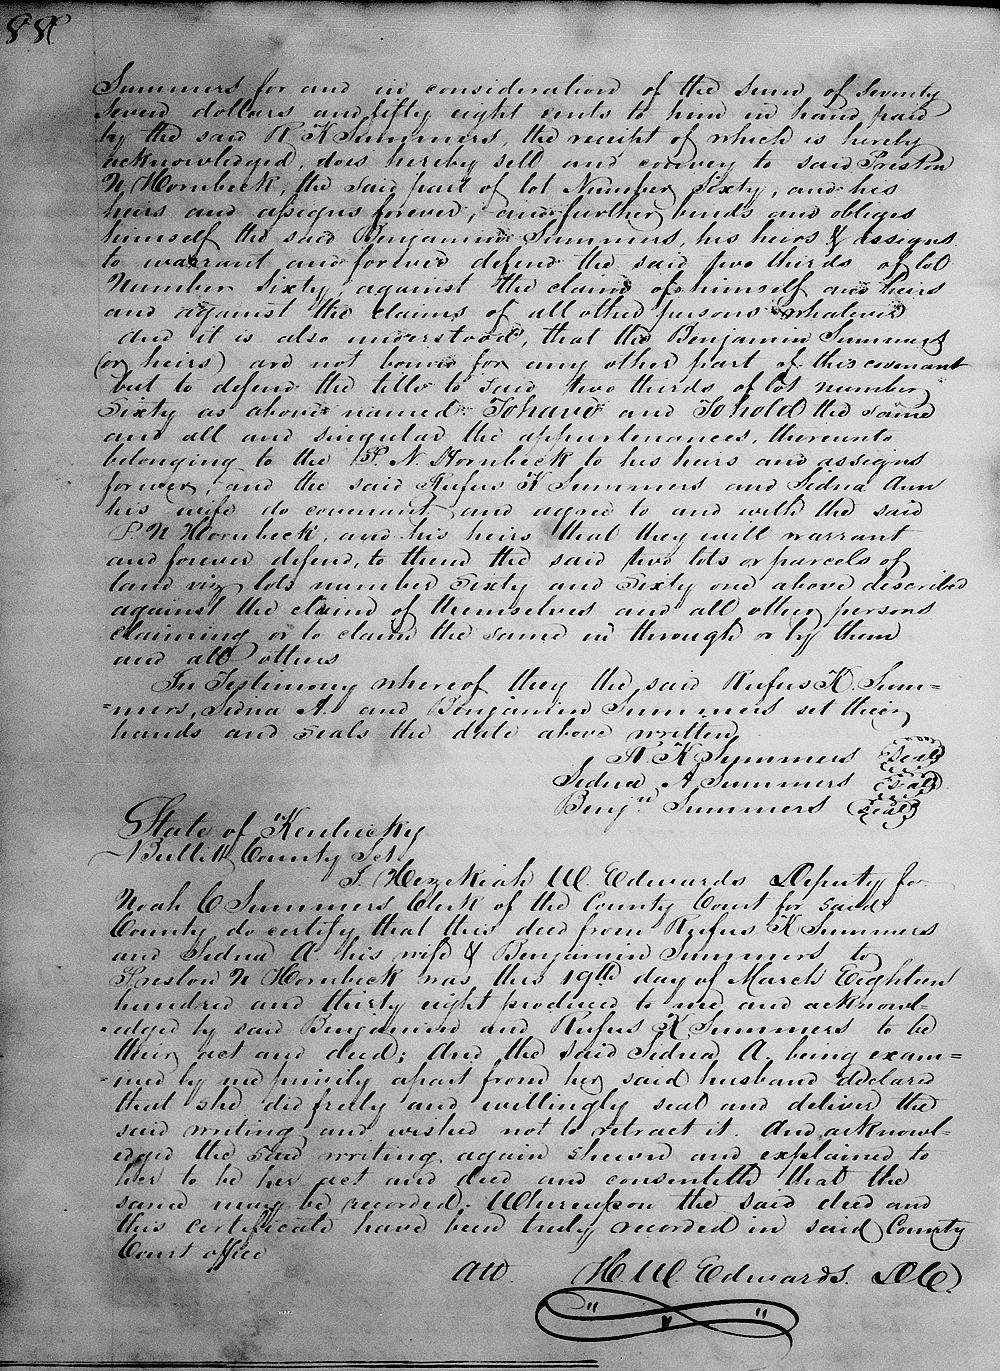 88
Summers for and in consideration of the sum of Seventy
seven dollars and fifty eight cents to him in hand paid
by the said R. K Summers, the receipt of which is hereby
acknowledged, does hereby sell and convey to said Preston
N Hornbeck, the said part of lot Number Sixty, and his
heirs and assigns forever, and further binds and obliges
himself the said Benjamin Summers, his heirs & assigns
to warrant and forever defend the said two thirds of lot
Number Sixty against the claim of himself and heirs
and against the claims of all other persons whatever
and it is also understood, that the Benjamin Summers
(or heirs) are not bound for any other part of this covenant
but to defend the title to said two thirds of lot number
Sixty as above named To have and To hold the same
and all and singular the appurtenances, thereunto
belonging to the P. N. Hornbeck to his heirs and assigns
forever, and the said Rufus K Summers and Sidna Ann
his wife do covenant and agree to and with the said
P. N Hornbeck, and his heirs that they will warrant
and forever defend, to them the said two lots or parcels of
land viz lots number Sixty and Sixty one above described
against the claim of themselves and all other persons
claiming or to claim the same in through or by them
and all others
In Testimony whereof they the said Rufus K. Sum=
=mers, Sidna A. and Benjamin Summers set their
hands and seals the date above written
R. K Summers (Seal)
Sidna A Summers (Seal)
Benjn Summers (Seal)
State of Kentucky
Bullitt County Sct.
I Hezekiah W. Edwards Deputy for
Noah C Summers Clerk of the County Court for said
County do certify that this deed from Rufus K Summers
and Sidna A. his wife & Benjamin Summers to
Preston N Hornbeck was this 19th day of March Eighteen
hundred and thirty eight produced to me and acknowl-
-edged by said Benjamin and Rufus K Summers to be
their act and deed; And the said Sidna A. being exam=
=ined by me privily apart from her said husband declared
that she did freely and willingly seal and deliver the
said writing and wished not to retract it. And acknowl-
edged the said writing again shewn and explained to
her to be her act and deed and consenteth that the
same may be recorded. Whereupon the said deed and
this certificate have been truly recorded in said County
Court office
Att. H. W. Edwards. D C